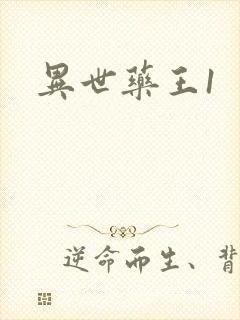 異世藥王1
逆命而生、背